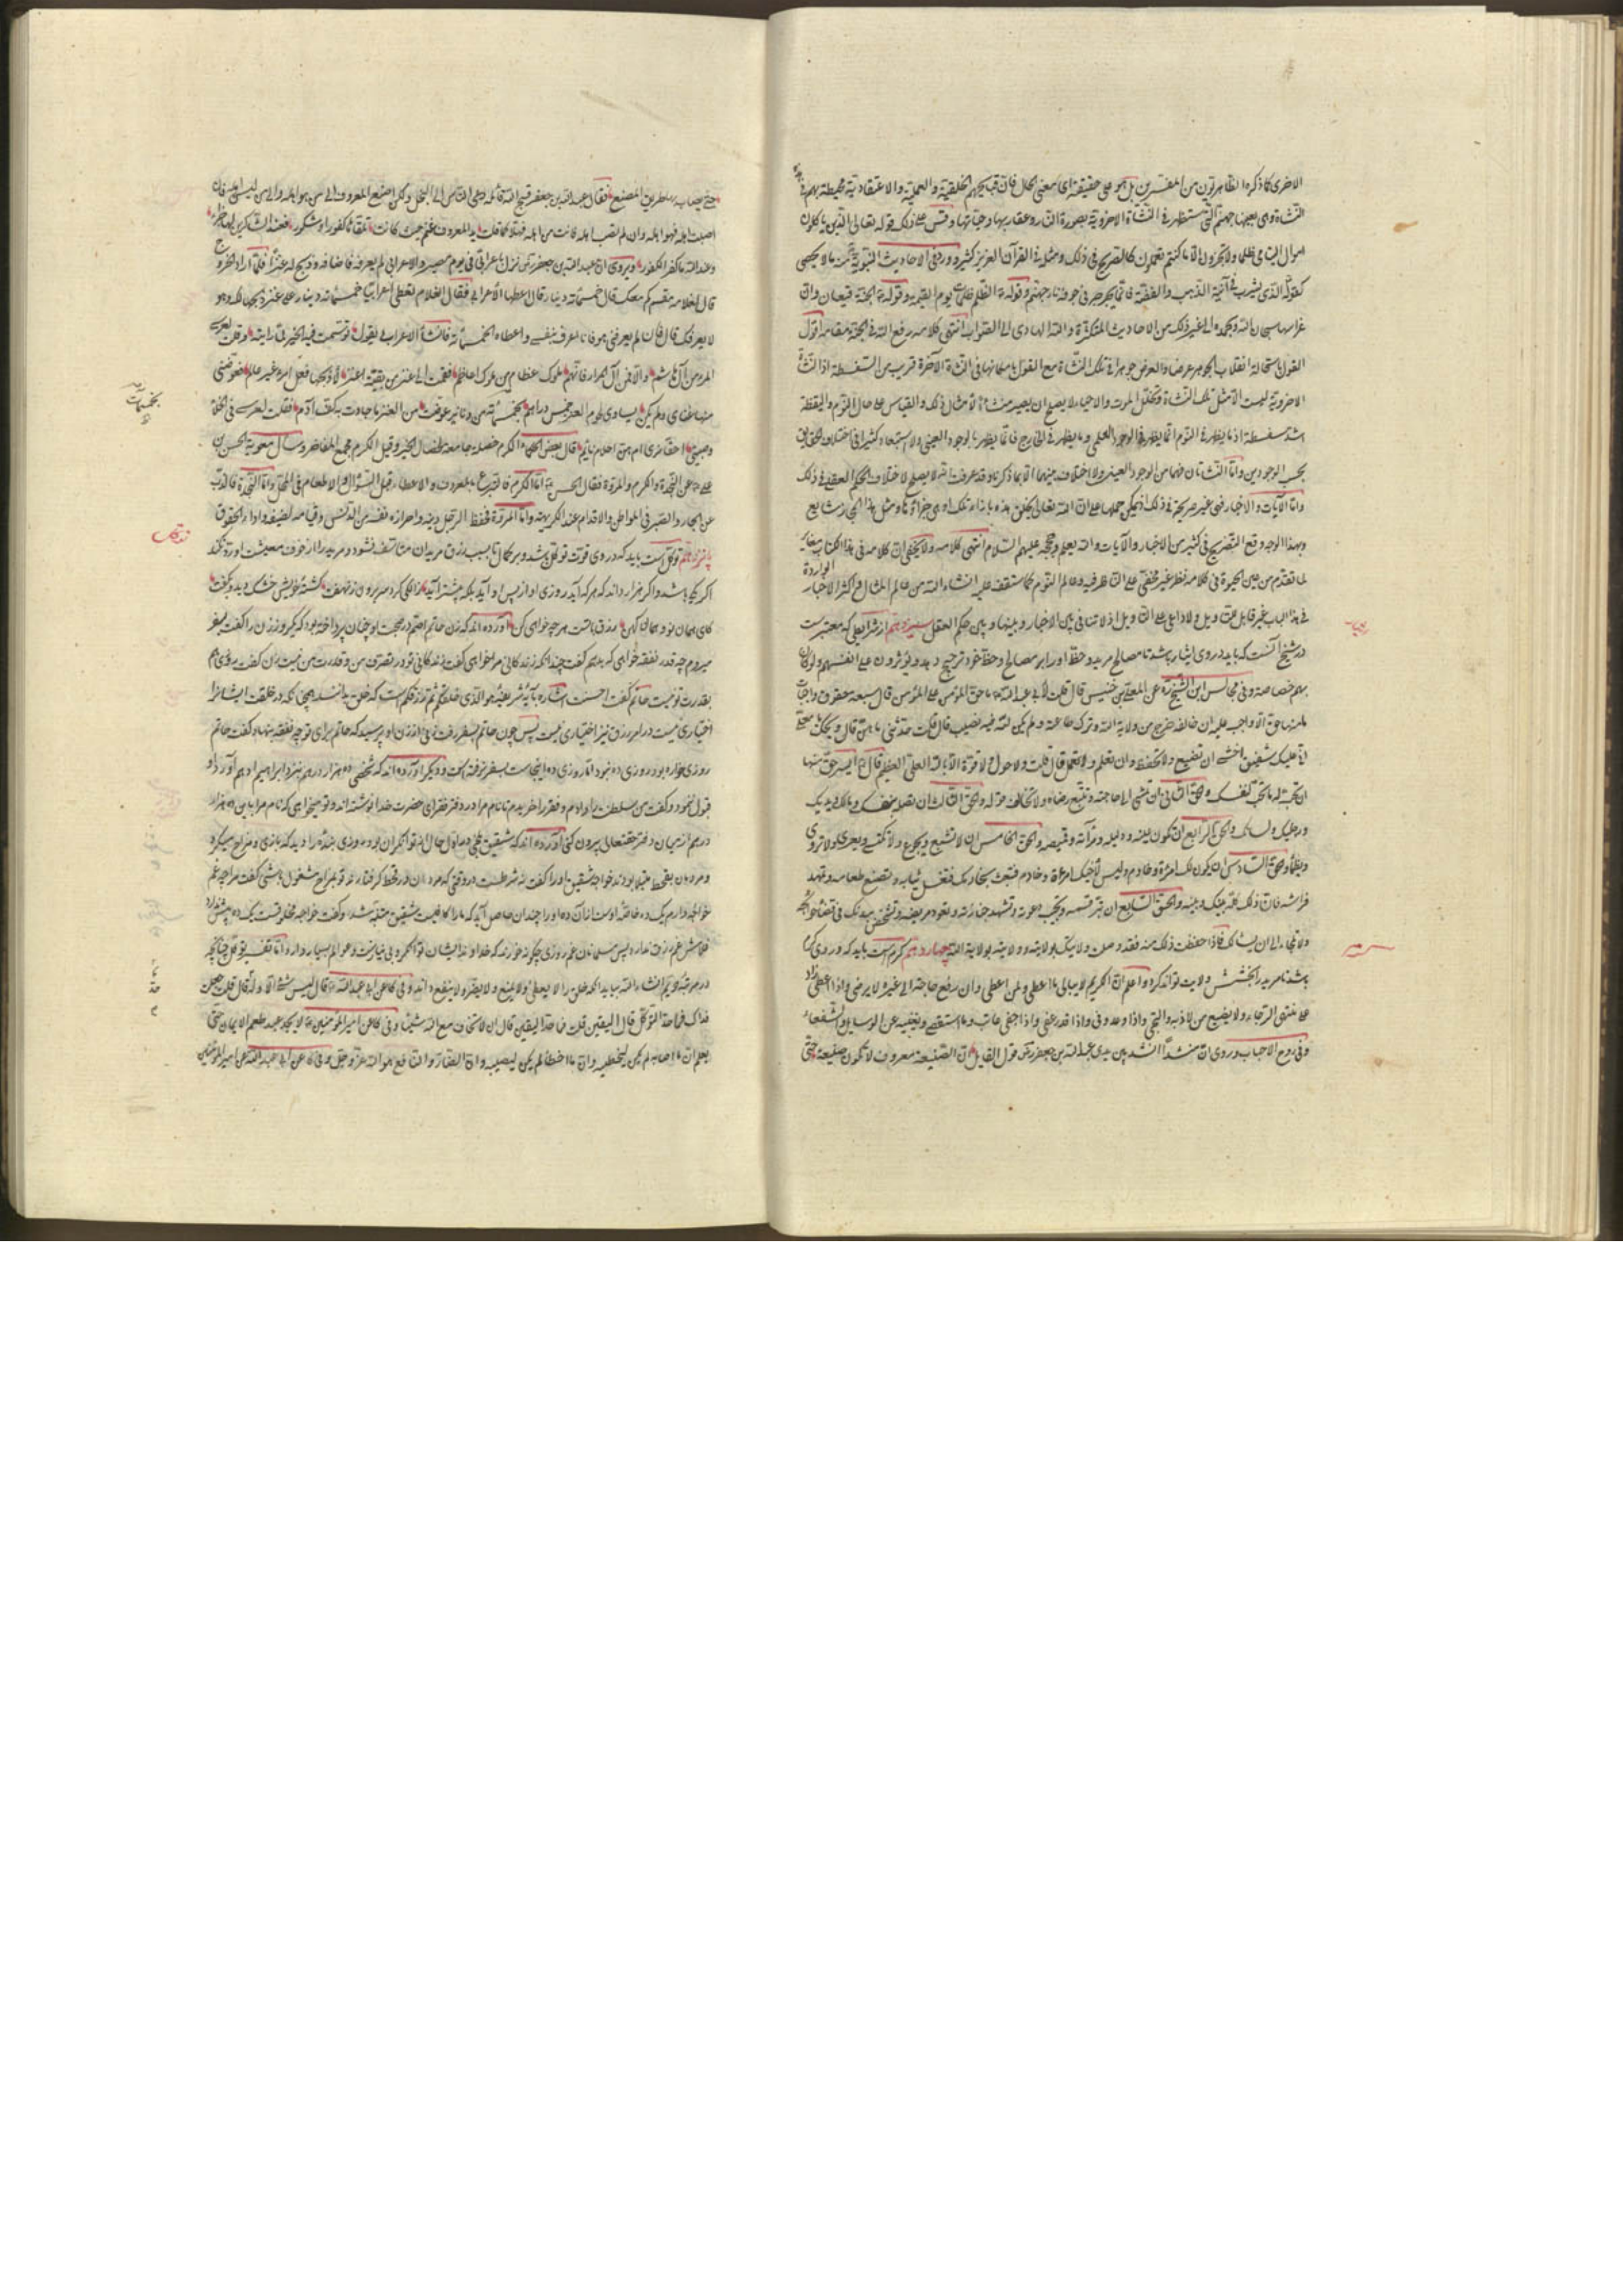 الاخرى كما ذكره الظاهريون من المفسرين بل هو على حقيقته اى معنى الحال فان قبايحهم الخلقية والعملية والاعتقادية محيطة بهم فى هذه
النشاة وهى بعينها جهنم التى ستظهر فى النشاة الاخروية بصورة النار وعقاربها وحياتها وقس على ذلك قوله تعالى الذين ياكلون
اموال اليتامى ظلما ولا تجزون الا ما كنتم تعملون كالصريح فى ذلك ومثله فى القرآن العزيز كثير وورد فى الاحاديث النبوية منه ما لا يحصى
كقوله الذى يشرب فى آنية الذهب والفضة فانما يجرجر فى جوفه نار جهنم وقوله الظلم ظلمات يوم القيمة وقوله الجنة قيعان وان
غراسها سبحان الله وبحمده الى غير ذلك من الاحاديث المتكثرة والله الهادى الى الصواب انتهى كلامه رفع الله فى الجنة مقامه اقول
القول باستحالة انقلاب الجوهر عرضا والعرض جوهرا فى تلك النشاة مع القول بامكانها فى النشاة الآخرة قريب من السفسطة اذ النشاة
الاخروية ليست الا مثل تلك النشاة وتخلل الموت والاحياء لا يصلح ان يصير منشأ لامثال ذلك والقياس على حال النوم واليقظة
اشد سفسطة اذ ما يظهر فى النوم انما يظهر فى الوجود العلمى وما يظهر فى الخارج فانما يظهر بالوجود العينى ولا استبعاد كثيرا فى اختلاف الحقايق
بحسب الوجودين واما النشاتان فهما من الوجود العينى ولا اختلاف بينهما الا بما ذكرنا وقد عرفت انه لا يصلح لاختلاف الحكم العقلى فى ذلك
واما الآيات والاخبار فهى غير صريحة فى ذلك اذ يمكن حملها على ان الله تعالى يخلق هذه بازاء تلك او هى جزاؤها ومثل هذا المجاز شايع
وبهذا الوجه وقع التصريح فى كثير من الاخبار والآيات والله يعلم وحججه عليهم السلام انتهى كلامه ولا يخفى ان كلامه فى هذا الكتاب مغاير
لما تقدم من عين الحيوة فى كلامه نظر غير مخفى على الناظر فيه وعالم النوم كما ستقف عليه انشاء الله من عالم المثال واكثر الاخبار الواردة
فى هذا الباب غير قابل للتاويل ولا داعى على التاويل اذ لا تنافى بين الاخبار وبينها وبين حكم العقل سيزدهم از شرايطى كه معتبرست
در شيخ آنست كه بايد در وى ايثار باشد تا مصالح مريد و حظ او را بر مصالح و حظ خود ترجيح دهد ويؤثرون على انفسهم ولو كان
بهم خصاصة وفى مجالس ابن الشيخ ره عن المعلى بن خنيس قال قلت لابى عبد الله ما حق المؤمن على المؤمن قال سبعة حقوق واجبات
ما منها حق الا واجب عليه ان خالفه خرج من ولاية الله وترك طاعته ولم يكن لله فيه نصيب قال قلت حدثنى ما هن قال ويحك يا معلى
انى عليك شفيق اخشى ان تضيع ولا تحفظ وان تعلم ولا تعمل قال قلت ولا حول ولا قوة الا بالله العلى العظيم قال ايسر حق منها
ان تحب له ما تحب لنفسك والحق الثانى ان تمشى الى حاجته وتتبع رضاه ولا تخالف قوله والحق الثالث ان تصله بنفسك ومالك ويديك
ورجليك ولسانك والحق الرابع ان تكون عينه ودليله ومرآته وقميصه والحق الخامس ان لا تشبع ويجوع ولا تكتسى ويعرى ولا تروى
ويظمأ والحق السادس ان يكون لك امرأة وخادم وليس لاخيك امرأة وخادم فتبعث بخادمك فتغسل ثيابه وتصنع طعامه وتمهد
فراشه فان ذلك كله بينك وبينه والحق السابع ان تبر قسمه وتجيب دعوته وتشهد جنازته وتعود مريضه وتشخص بدنك فى قضاء حوائجه
ولا تلجاه الى ان يسالك فاذا حفظت ذلك منه فقد وصلت ولايتك بولايته وولايته بولاية الله چهاردهم كرم است بايد كه در وى كرم
باشد تا مريد را بخشش ولايت تواند كرد واعلم ان الكريم لا يبالى ما اعطى ولمن اعطى وان رفع حاجته الى غيره لا يرضى واذا اعطى زاد
على منتهى الرجاء ولا يضيع من لاذ به والتجى واذا وعد وفى واذا قدر عفى واذا جفى عاتب وما استقصى ويغنيه عن الوسايل والشفعاء
وفى روح الاحباب وروى ان منشدا انشد بين يدى عبد الله بن جعفر قول القايل ان الصنيعة لا تكون صنيعة حتى
حتى يصاب بها طريق المصنع فقال عبد الله بن جعفر قبح الله قائله دعى الناس الى البخل ولكن اصنع المعروف الى من هو اهله والى من ليس اهله فان
اصبت اهله فهو اهله وان لم تصب اهله فانت من اهله فقد كما قلت يد المعروف غنم حيث كانت تلقاها كفور او شكور فعند الشاكرين لها جزاء
وعند الله ما كفر الكفور وروى ان عبد الله بن جعفر نزل باعرابى فى يوم والاعرابى لم يعرفه فاضافه وذبح له عنزا فلما اراد الخروج
قال لغلامه كم معك قال خمسمائة دينار قال اعطها الاعرابى فقال الغلام تعطى اعرابيا خمسمائة دينار على عنز ذبحها لك وهو
لا يعرفك قال فان لم يعرفنى هو فانا اعرف نفسى واعطاه الخمسمائة فانشأ الاعرابى يقول توسمت فيه الخير لما رايته وقلت لعرسى
المرء من آل هاشم والا فمن آل المرار فانهم ملوك عظام من ملوك اعاظم فقمت الى عنز من بقية اعنز لاذبحها فعل امرء غير عالم فعوضنى
منها غناى ولم يكن يساوى لحوم العنز خمس دراهم بخمسمائة من دنانير عوضت من العنز ما جادت به كف آدم فقلت لعرسى فى الخلاء
وصبيتى احقا نرى ام احلام نايم قال بعض الحكماء الكرم خصلة جامعة لخصال الخير وقيل الكرم مجمع المفاخر وسال معوية الحسن بن
على عن النجدة والكرم والمروة فقال الحسن اما الكرم فالتبرع بالمعروف والاعطاء قبل السؤال والاطعام فى المحل واما النجدة فالذب
عن الجار والصبر فى المواطن والاقدام عند الكريهة واما المروة فحفظ الرجل دينه واحرازه نفسه من الدنس وقيامه لضيفه واداء الحقوق
پانزدهم توكل است بايد كه در وى قوت توكل باشد و بر كمال تا بسبب رزق مريدان متاسف نشود و مريد را از خوف معيشت او رد نكند
اگر يكى باشد و اگر هزار داند كه هر كه آيد روزى او از پس او آيد بلكه پيشتر آيد
كاى همان نو و همان كهن رزق ماست هر چه خواهى كن آورده اند كه زن حاتم اصم
ميروم چه قدر نفقه خواهى كه بدهم گفت چندانكه زندگانى مرا خواهى گفت زندگانى تو در تصرف من و قدرت من نيست زن گفت روزى هم
بقدرت تو نيست حاتم گفت احسنت اشاره بآية شريفة هو الذى خلقكم ثم رزقكم است كه خلق بدانند همچنانكه در خلقت ايشانرا
اختيارى نيست در امر رزق نيز اختيارى نيست پس چون حاتم بسفر رفت زنى از زن او پرسيد كه حاتم براى تو چه نفقه بنهاد گفت حاتم
روزى خواره بود روزى ده نبود اما روزى ده اينجاست بسفر نرفته است و ديگر آورده اند كه شخصى ده هزار درهم نزد ابراهيم ادهم آورد او
قبول ننمود و گفت من سلطنت را دادم و فقر را خريدم تا نام مرا در دفتر فقراى حضرت خدا نوشته اند و تو ميخواهى كه نام مرا باين ده هزار
درهم از ميان دفتر حقتعالى بيرون كنى آورده اند كه شقيق بلخى در اول حال از توانگران بود و روزى بنده را ديد كه بازى و مزاح ميكرد
و مردمان بقحط مبتلا بودند خواجه شقيق او را گفت
خواجه دارم يك ده خاصه اوست از آن ده او را چندان حاصل آيد كه ما را كافيست شقيق متنبه شد و گفت خواجه مخلوقست يك ده پيش ندارد
غلامش غم رزق ندارد پس مسلمانان غم روزى چگونه خورند كه خداوند ايشان توانگر و بى نيازست
در مرتبه سيم انشاء الله بيايد اما خلق را لا يعطى ولا يمنع ولا يضر ولا ينفع دانند وفى كا عن ابى عبد الله قال ليس شئ الا وله حد قال قلت جعلت
فداك فما حد التوكل قال اليقين قلت فما حد اليقين قال ان لا تخاف مع الله شيئا وفى كا عن امير المؤمنين لا يجد عبد طعم الايمان حتى
يعلم ان ما اصابه لم يكن ليخطيه وان ما اخطأه لم يكن ليصيبه وان الضار والنافع هو الله عز وجل وفى كا عن ابى عبد الله عن امير المؤمنين